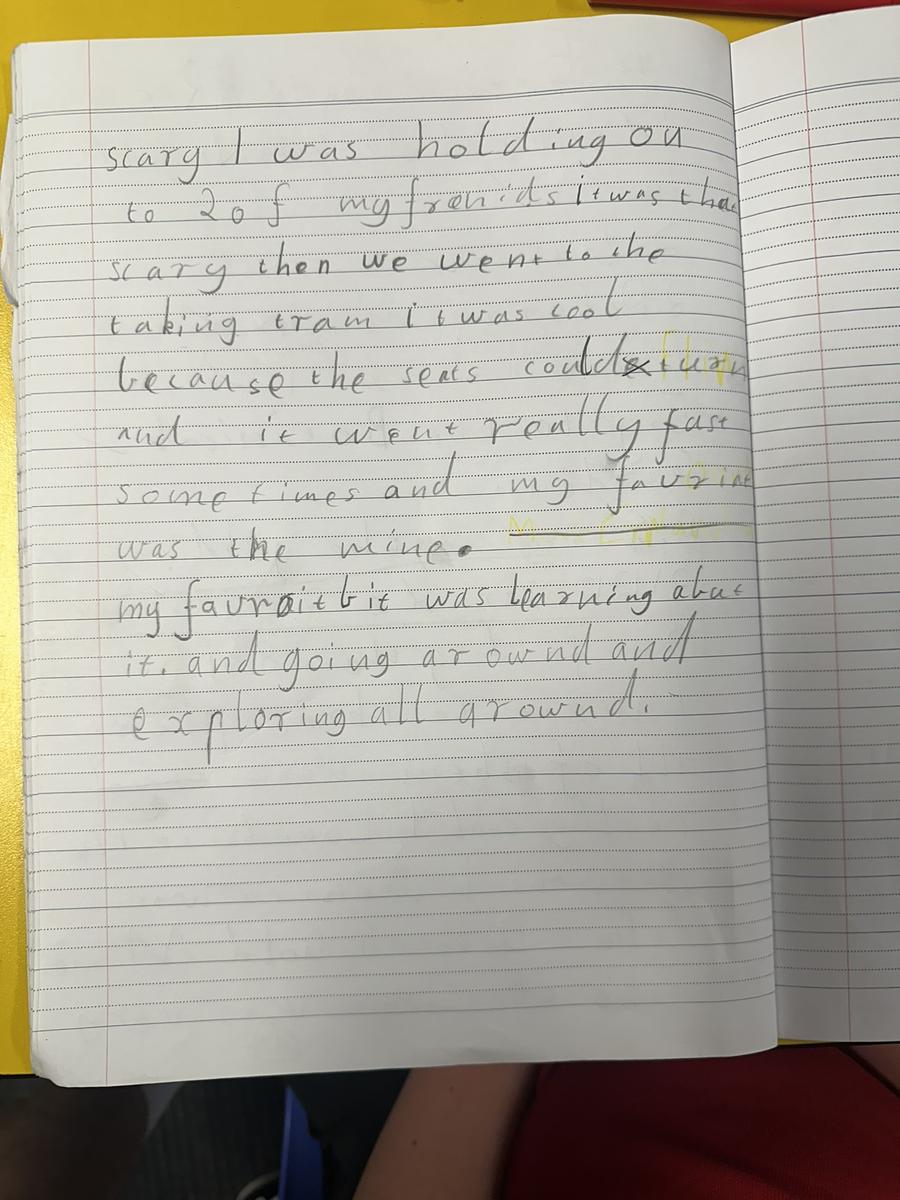 scary I was holding on
to 2 of my fronids it was tha
scary then we went to the
taking tram it was cool
because the seats could turn
and it went really fast
some times and my favrit
was the mine.
my favroit bit was learning abut
it. and going arownd and
exploring all arownd.